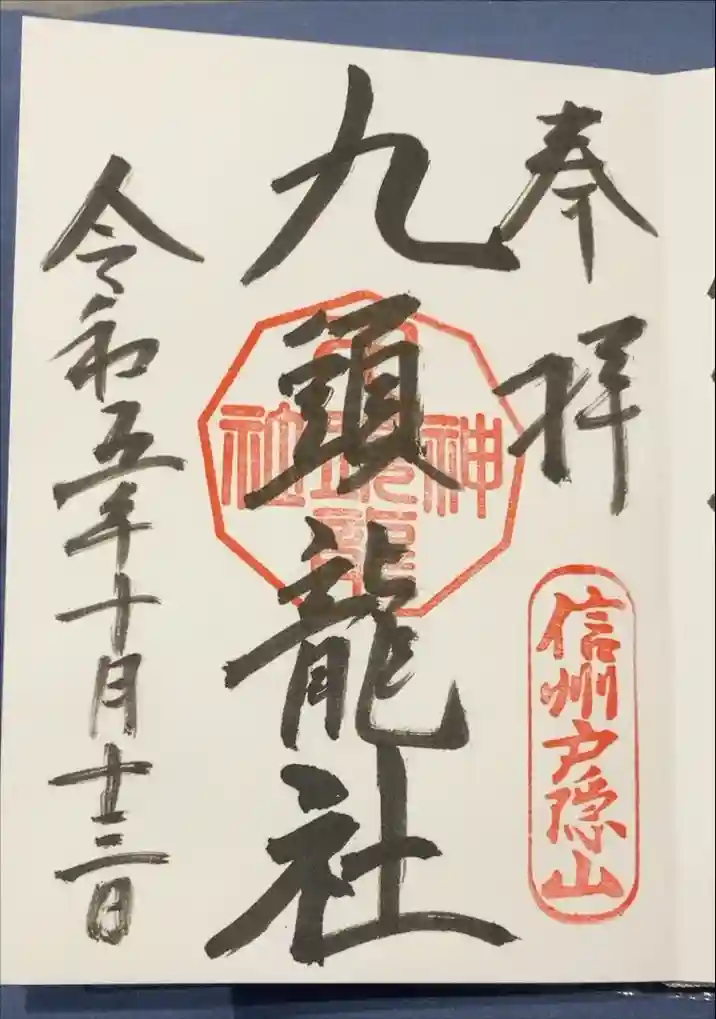 奉拝
信州戸隠山
九頭龍社
令和五年十月十三日